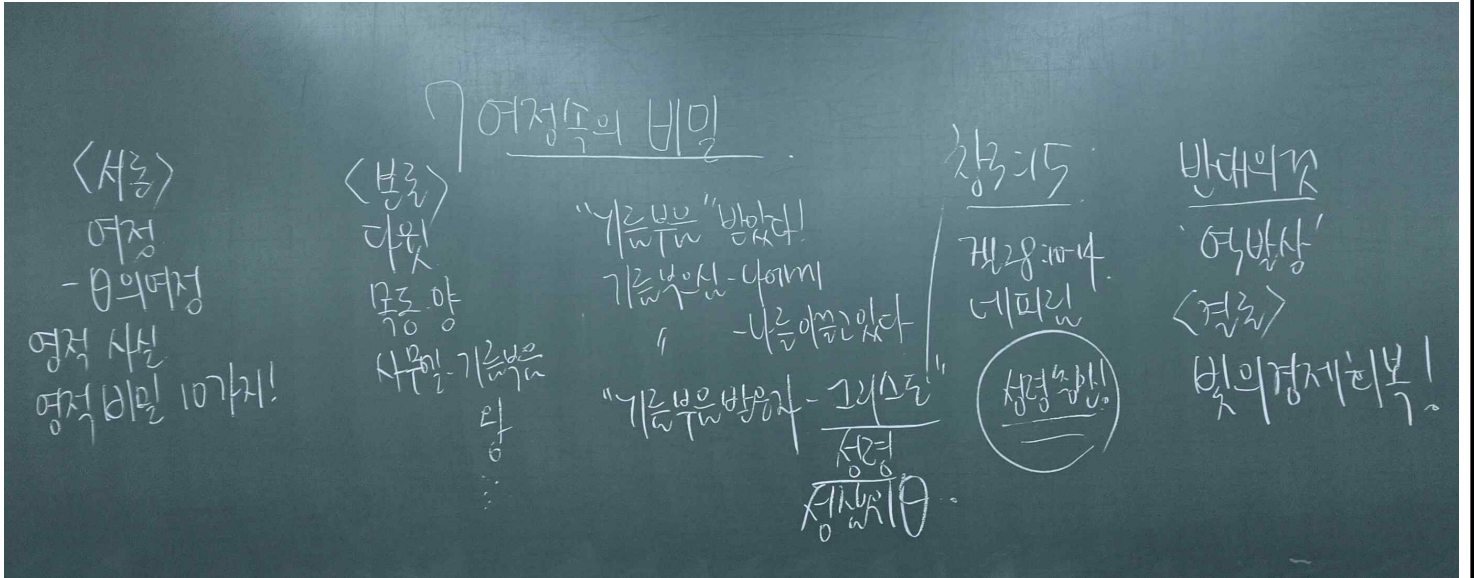 7 여정속의 비밀
<서론>
여정
- θ의여정
영적 사실
영적 비밀 10가지!
<본론>
다윗
목동. 양
사무엘- 기름부음
왕
"기름부음" 받았다!
기름부으심 - 나에게
〃 - 나를이끌고있다
"기름부음받은자 - 그리스도"
성령
성삼위θ
창3:15
겔28:10-14
네피림
성령충만!
반대의것
'역발상'
<결론>
빛의경제회복!